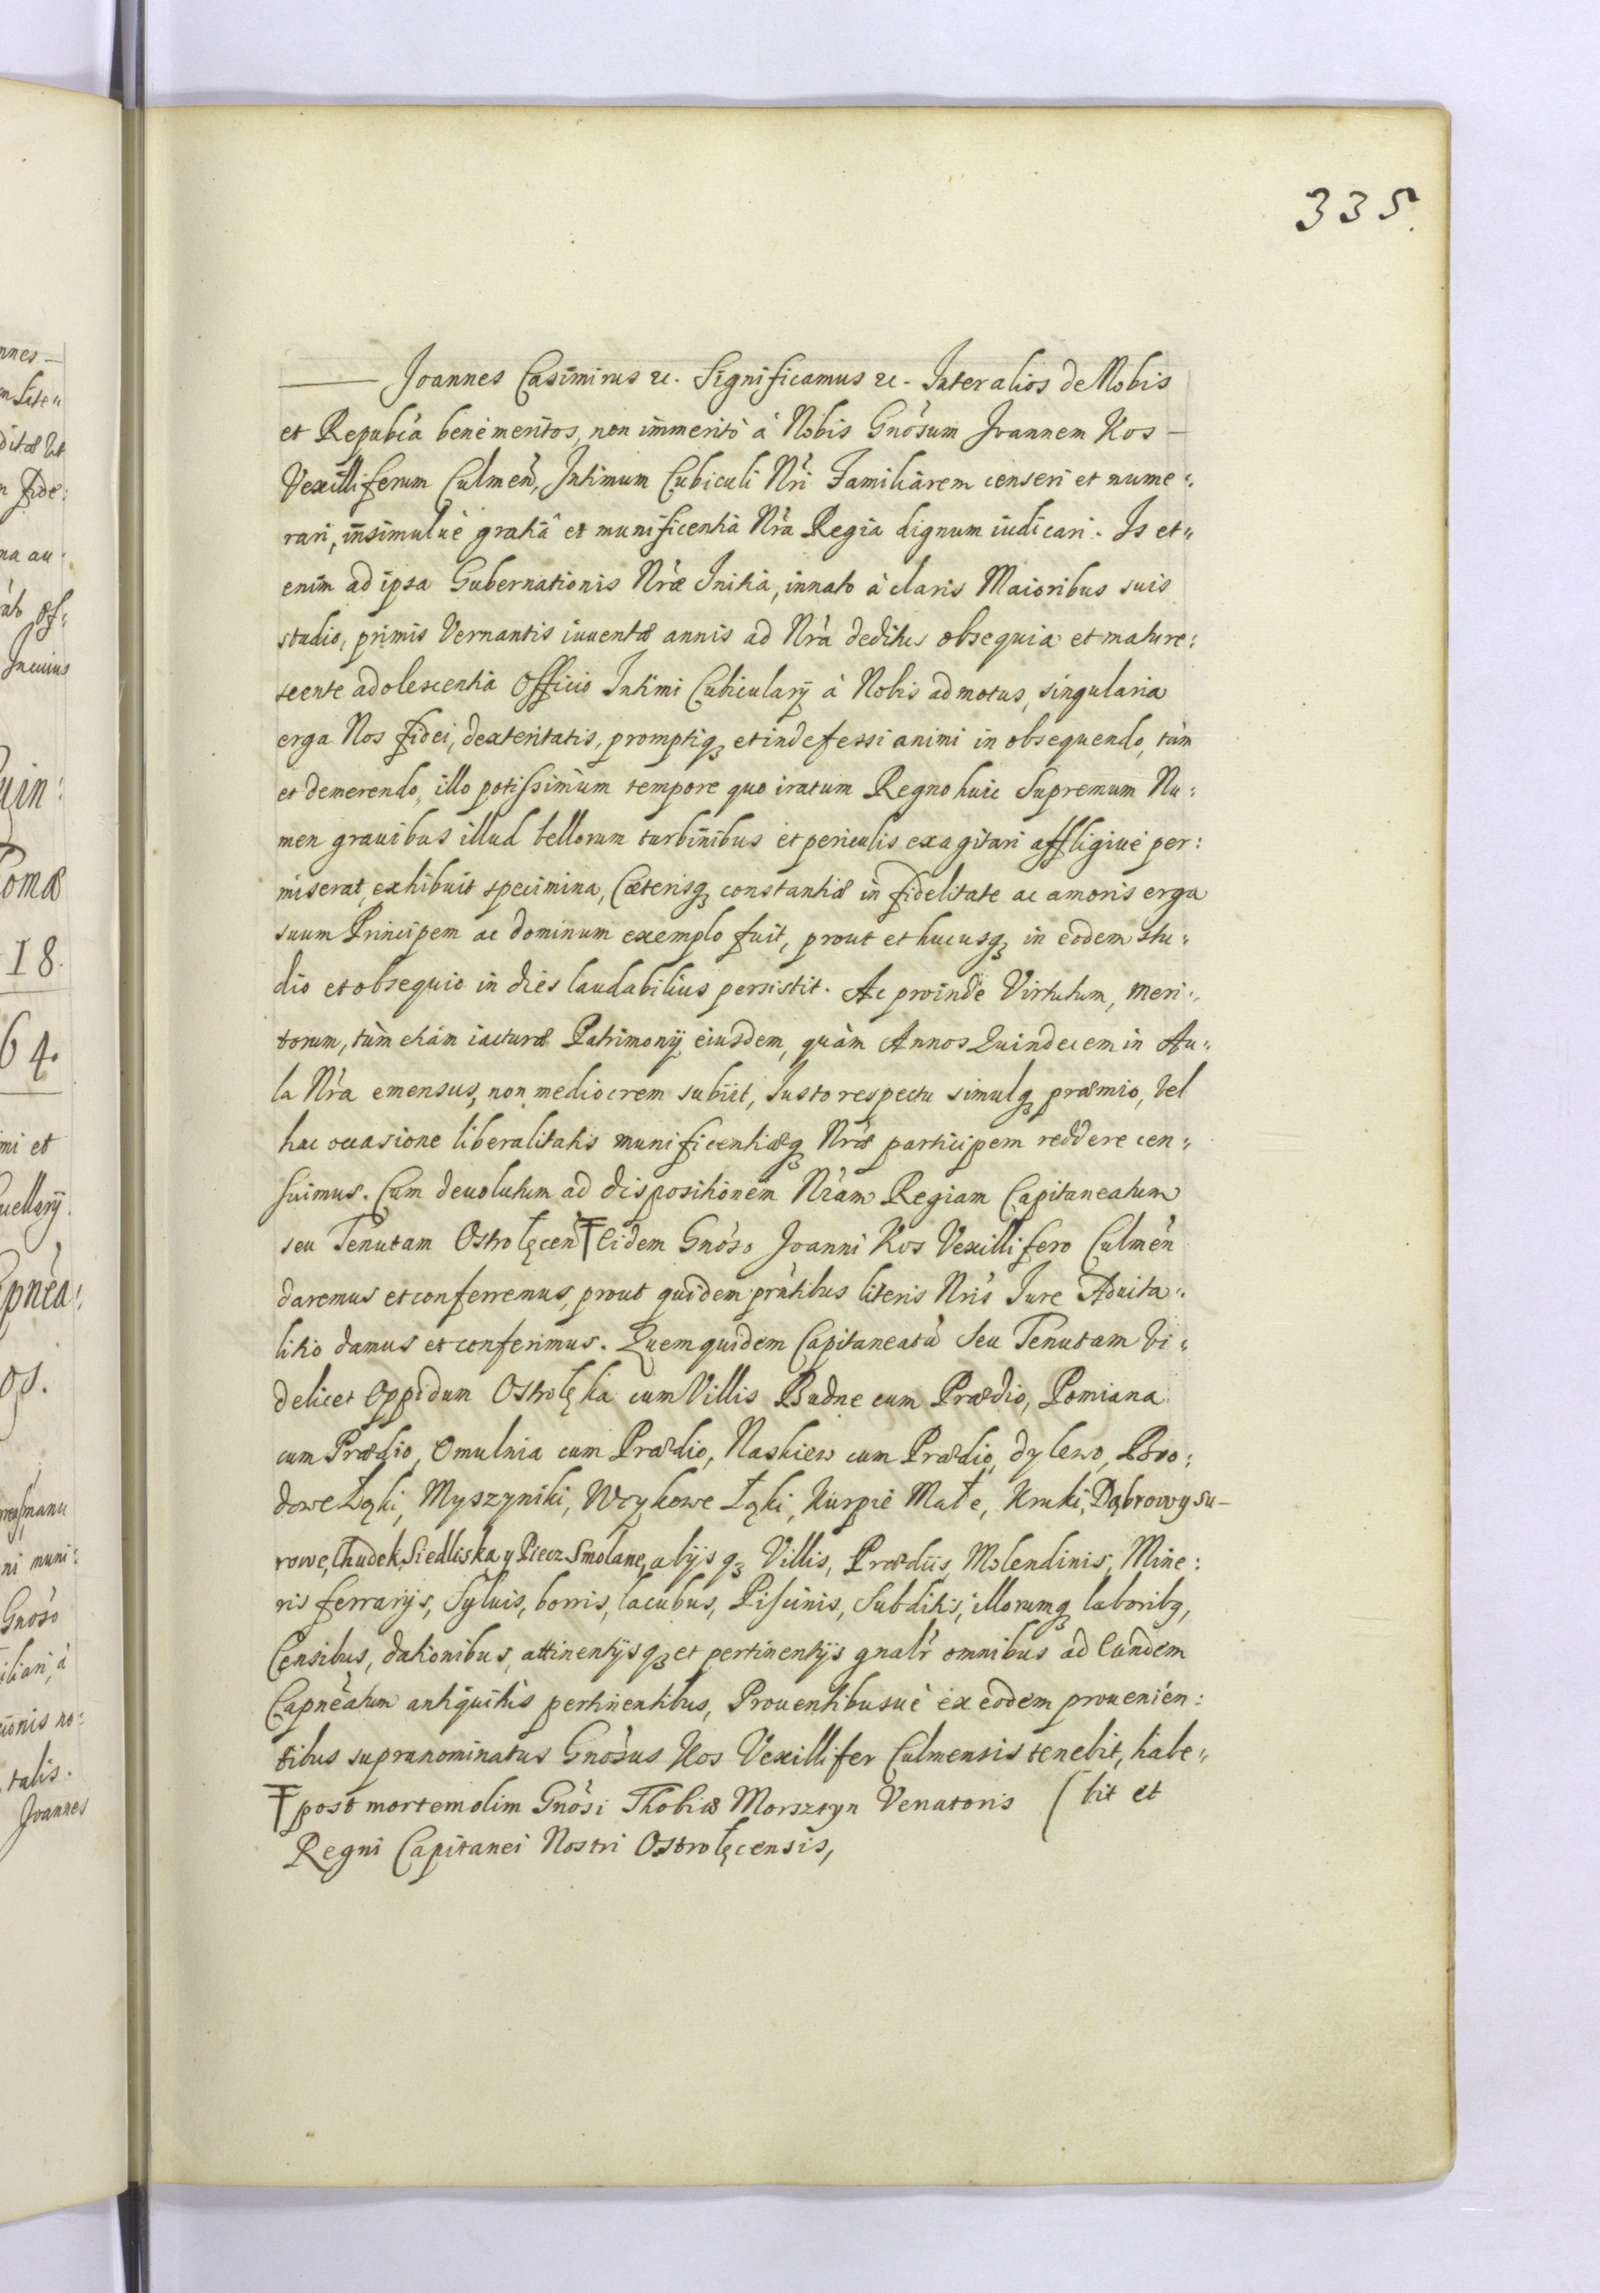 335.
Joannes Casimirus etc. Significamus etc. Inter alios de Nobis
et Repub̀ca benè meritos, non immeritò à Nobis Gnòsum Joannem Kos —
Vexilliferum Culmeǹ, Intimum Cubiculi Nr̀i Familiàrem censeri et nume:
rari, insimulvè gratiâ et munificentia Nr̀a Regia dignum iudicari. Is et„
enim ad ipsa Gubernationis Nr̀æ Initia, innato à claris Maioribus suis
studio, primis Vernantis iuventæ annis ad Nr̀a deditus obsequia et mature:
scente adolescentia Officio Intimi Cubicularÿ à Nobis admotus, singularia
erga Nos fidei, dexteritatis, promptiq₃ et indefessi animi in obsequendo, tùm
et demerendo, illo potissimùm tempore quo iratum Regno huic Supremum Nu:
men gravibus illud bellorum turbinibus et periculis exagitari affligivè per:
miserat, exhibuit specimina, Cæterisq₃ constantiæ in fidelitate ac amoris erga
suum Principem ac dominum exemplo fuit, prout et hucusq₃ in eodem stu„
dio et obsequio in dies laudabilius persistit. Ac proindè Virtutum, meri„
torum, tùm etiàm iacturæ Patrimonÿ eiusdem, quàm Annos Quindecem in Au„
la Nr̀a emensus, non mediocrem subiit, Justo respectu simulq₃ præmio, vel
hac occasione liberalitatis munificentiæq₃ Nr̀æ participem reddere cen„
suimus. Cum devolutum ad dispositionem Nr̀am Regiam Capitaneatum
seu Tenutam Ostrołęceǹ ╤ Eidem Gnòso Joanni Kos Vexillifero Culmèn
daremus et conferremus, prout quidem pràtibus literis Nr̀is Jure Advita„
litio damus et conferimus. Quem quidem Capitaneatù Seu Tenutam Vi„
delicet Oppidum Ostrołęka cum Villis Budne cum Prædio, Pomiana
cum Prædio, Omulnia cum Prædio, Naskiew cum Prædio, dylewo, Bro:
dowe Łąki, Myszyniki, Wcykowe Łąki, Kurpie Małe, Kruki, Dąbrowy Su-
rowe, Chudek, Siedliska y Piecz Smolane, alÿsq₃ Villis, Prædiis, Molendinis, Mine:
ris ferrarÿs, Syluis, borris, lacubus, Piscinis, Subditis, illorumq₃ laborib₃,
Censibus, dationibus, attinentÿsq₃ et pertinentÿs gnalr̀ omnibus ad Eundem
Capneàtum antiquitùs pertinentibus, Proventibusvè ex eodem provenien:
tibus supranominatus Gnòsus Kos Vexillifer Culmensis tenebit, habe„
(bit et
╤ post mortem olim Gnòsi Thobiæ Morsztyn Venatoris
Regni Capitanei Nostri Ostrołęcensis,